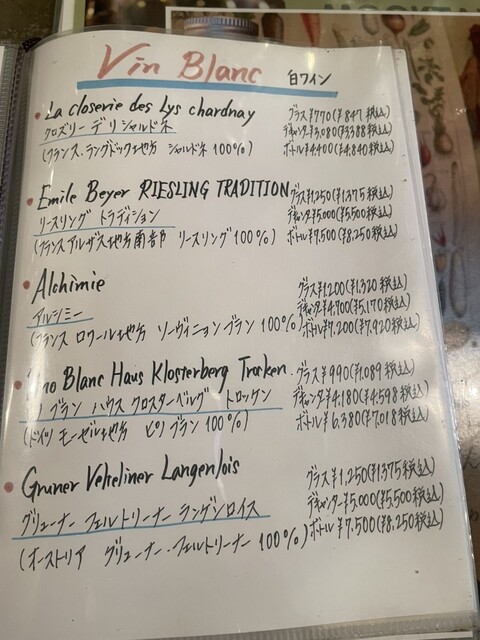 Vin Blanc 白ワイン
La closerie des Lys chardnay グラス¥770(¥847税込)
クロズリー デ リ シャルドネ デキャンタ¥3,080(¥3,388税込)
(フランス・ラングドック地方 シャルドネ 100%) ボトル¥4,400(¥4,840税込)
Emile Beyer RIESLING TRADITION グラス¥1,250(¥1,375税込)
リースリング トラディション デキャンタ¥5,000(¥5,500税込)
(フランス アルザス地方南部 リースリング100%) ボトル¥7,500(¥8,250税込)
Alchimie グラス¥1200(¥1,320税込)
アルシミー デキャンタ¥4,700(¥5,170税込)
(フランス ロワール地方 ソーヴィニョン ブラン 100%) ボトル¥7,200(¥7,920税込)
Blanc Haus Klosterberg Trocken グラス¥990(¥1,089税込)
ブラン ハウス クロスターベルグ トロッケン デキャンタ¥4,180(¥4,598税込)
(ドイツ モーゼル地方 ピノ ブラン 100%) ボトル¥6,380(¥7,018税込)
Gruner Velteliner Langenlois グラス¥1,250(¥1,375税込)
グリューナー フェルトリーナー ランゲンロイス デキャンタ¥5,000(¥5,500税込)
(オーストリア グリューナー・フェルトリーナー 100%) ボトル¥7,500(¥8,250税込)